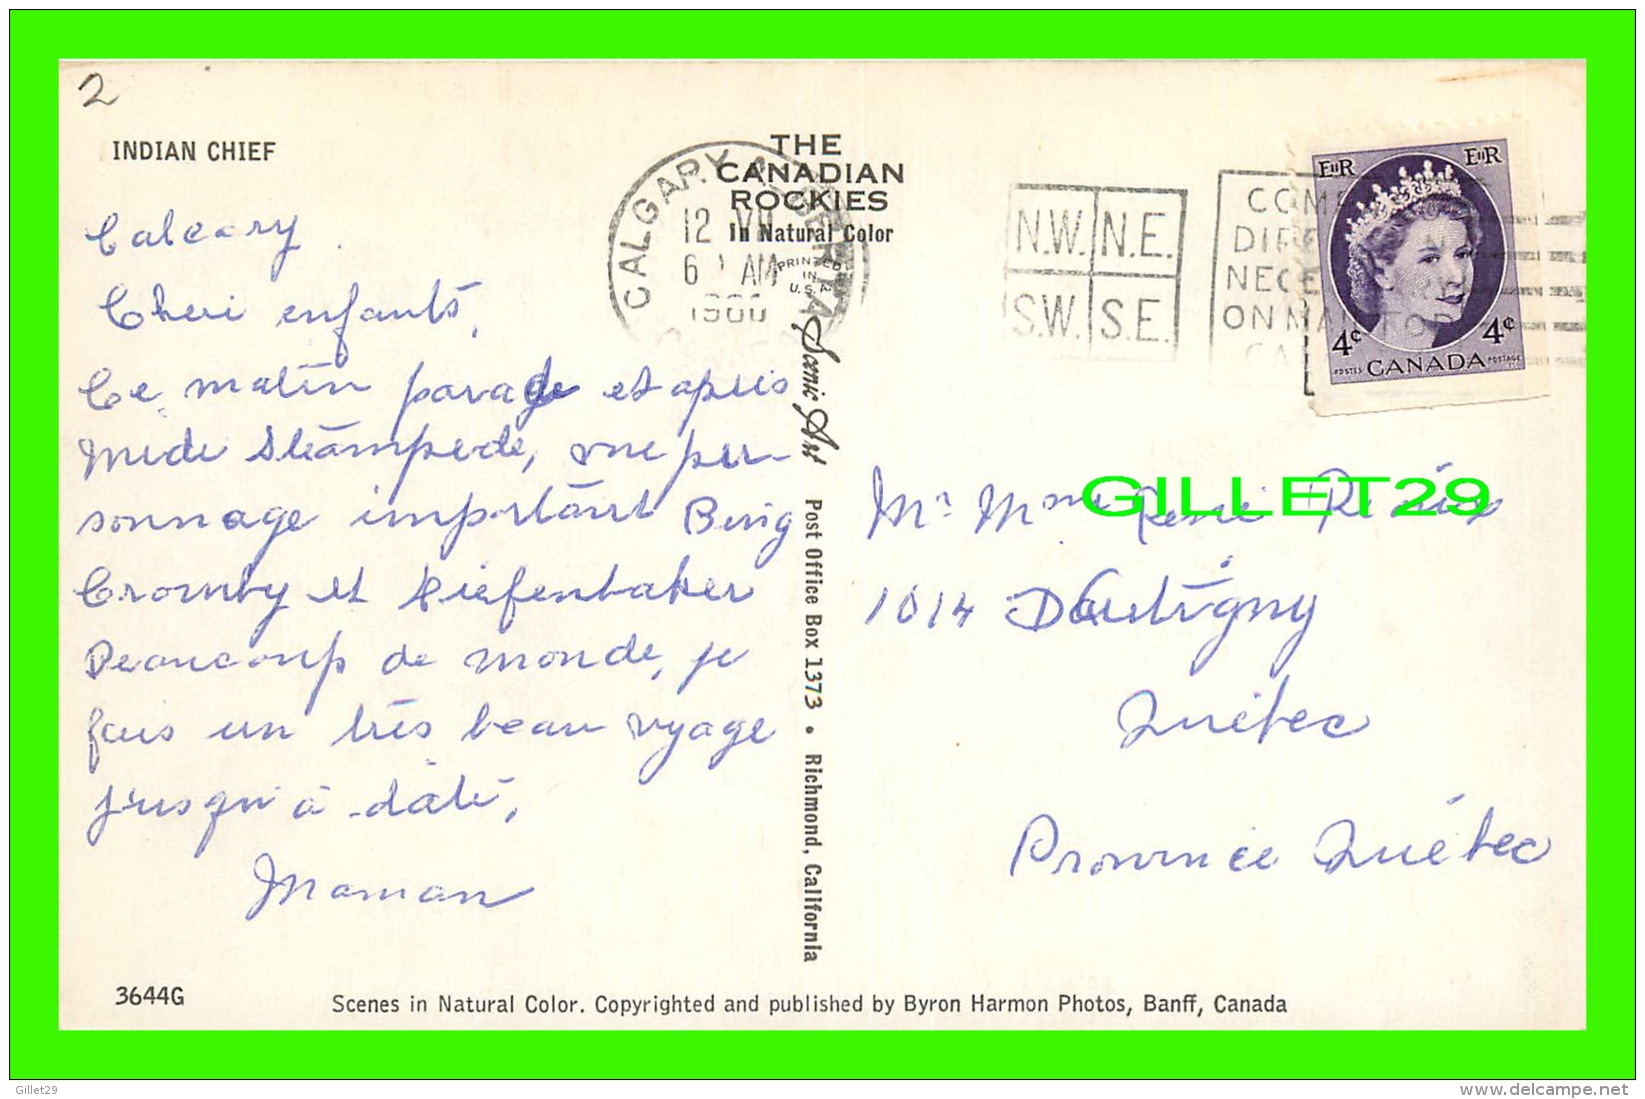 2
INDIAN CHIEF
THE
CANADIAN
ROCKIES
In Natural Color
PRINTED
IN
U.S.A.
CALGARY ALBERTA
12 VII
6 AM
1960
N.W. N.E.
S.W. S.E.
ON MAIL FOR
EIIR EIIR
4c 4c
POSTES CANADA POSTAGE
Calgary
Cheri enfants,
Ce matin parade et apres
Midi Stampede, une per-
sonnage important Bing
Cromby et Diefenbaker
Beaucoup de monde, je
fais un très beau voyage
jusqu'à daté,
Maman
Scenic Art
Post Office Box 1373 • Richmond, California
GILLET29
Mr Mme René
1014 Dartigny
Québec
Province Québec
3644G
Scenes in Natural Color. Copyrighted and published by Byron Harmon Photos, Banff, Canada
Gillet29
www.delcampe.net